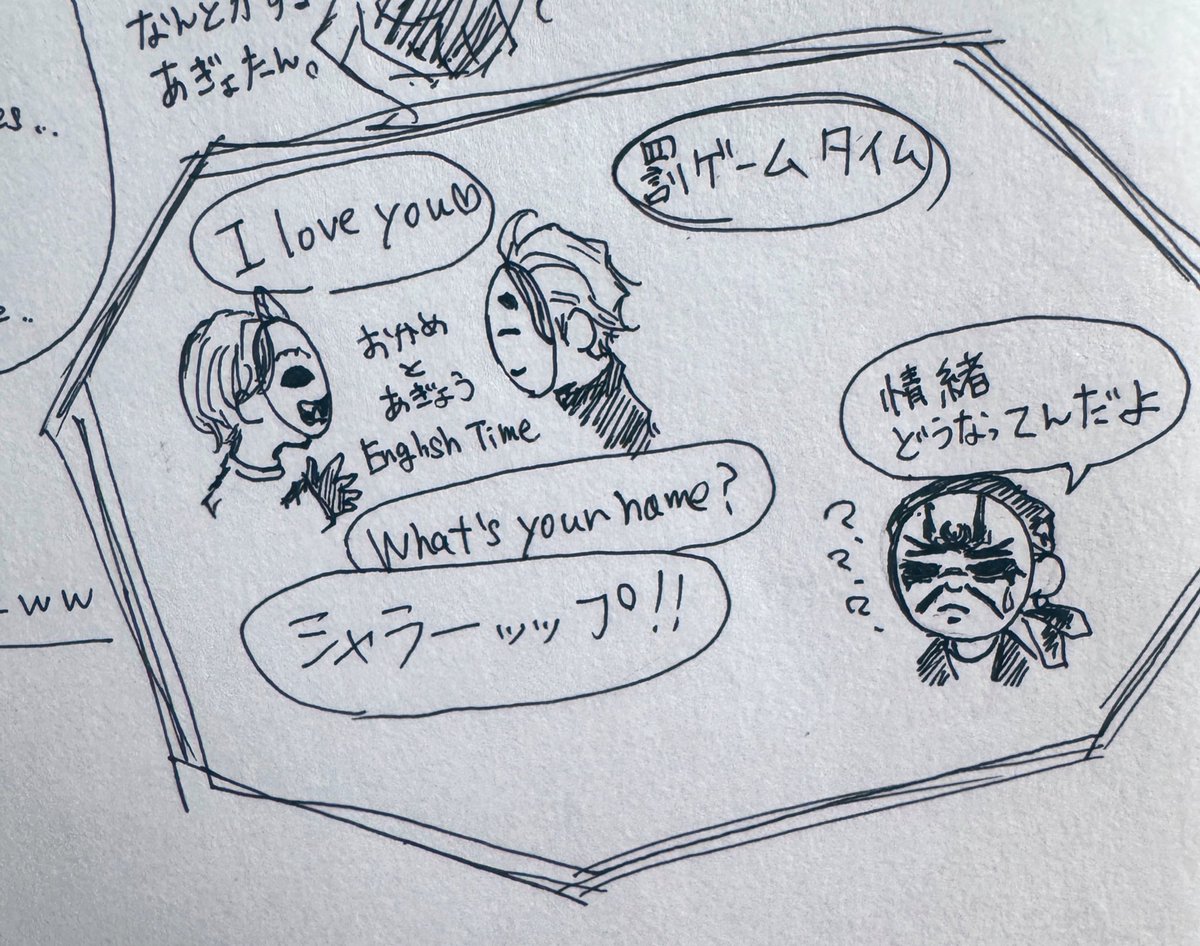 あぎょたん。
es..
e..
ww
罰ゲームタイム
I love you♡
おかめ
と
あぎょう
English Time
What's your name?
シャラーッップ!!
情緒
どうなってんだよ
? ? ? ?